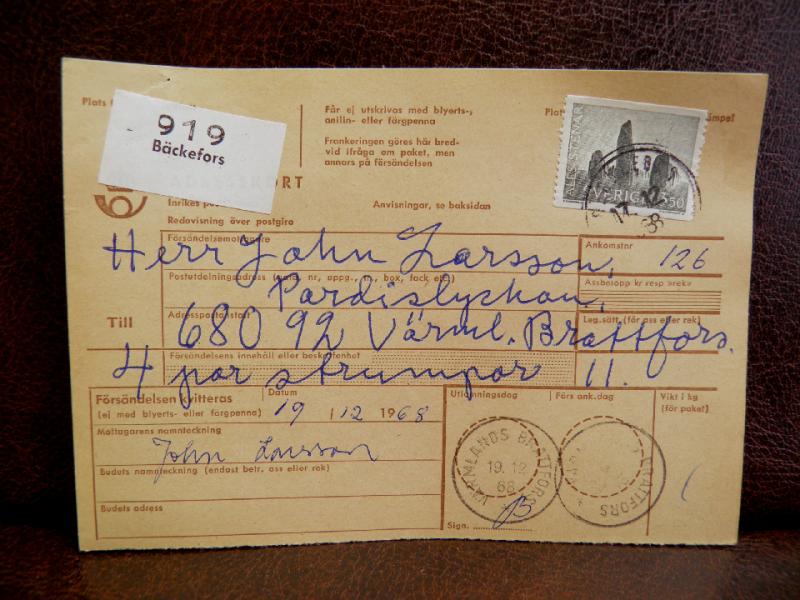 Plats f
919
Bäckefors
Får ej utskrivas med blyerts-,
anilin- eller färgpenna
Frankeringen göres här bred-
vid ifråga om paket, men
annars på försändelsen
Plat
ämpel
ALES STENAR
SVERIGE 3.50
17.12
68
ADRESSKORT
Inrikes
Anvisningar, se baksidan
Redovisning över postgiro
Försändelsemottagare
Herr John Larsson,
Ankomstnr
126
Postutdelningsadress (gata, nr, uppg., tr., box, fack etc.)
Assbelopp kr resp »rek»
Pardislyckan,
Till
Adresspostanstalt
680 92, Värml. Brattfors.
Leg.sätt. (för ass eller rek)
Försändelsens innehåll eller beskaffenhet
4 par strumpor 11.
Försändelsen kvitteras
(ej med blyerts- eller färgpenna)
Datum
19 / 12 1968
Utlämningsdag
Förs ank.dag
Vikt i kg
(för paket)
Mottagarens namnteckning
John Larsson
VÄRMLANDS BRATTFORS
19.12
68
BRATTFORS
Budets namnteckning (endast betr. ass eller rek)
Budets adress
Sign.